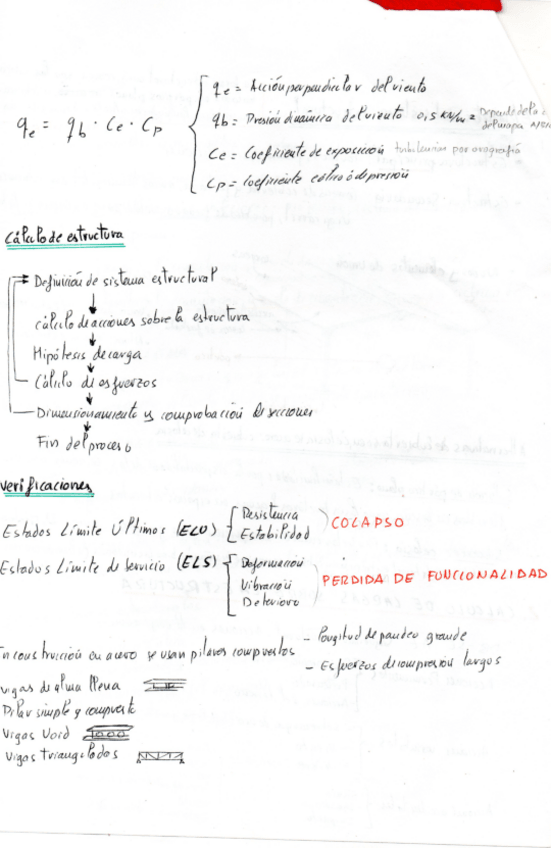 qe = qb · Ce · Cp
qe = Acción perpendicular del viento
qb = Presión dinámica del viento 0,5 KN/m² Depende de la
del mapa
Ce = Coeficiente de exposición turbulencias por orografía
Cp = Coeficiente eólico o de presión
Cálculo de estructura
Definición de sistema estructural
cálculo de acciones sobre la estructura
Hipótesis de carga
Cálculo de esfuerzos
Dimensionamiento y comprobación de secciones
Fin del proceso
Verificaciones
Estados Límite Últimos (ELU)
Resistencia
Estabilidad
COLAPSO
Estados Límite de servicio (ELS)
Deformación
Vibración
Deterioro
PERDIDA DE FUNCIONALIDAD
En construcción en acero se usan pilares compuestos
- Longitud de pandeo grande
- Esfuerzos de compresión largos
Vigas de alma llena
Pilar simple y compuesto
Vigas Void
Vigas trianguladas